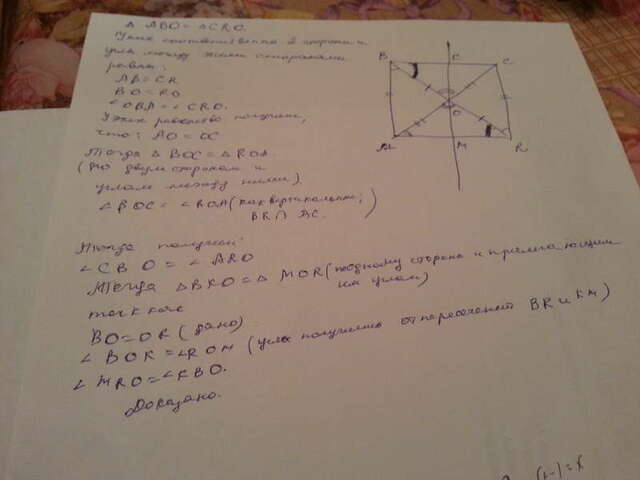 △ ABO = △ CRO.
У них соответственно 2 стороны и
угла между этими сторонами
равны.
AB = CR
BO = RO
∠OBA = ∠CRO.
У них равенство получим,
что: AO = OC
Тогда △ BOC = △ ROA
(по двум сторонам и
углам между ними).
∠BOC = ∠ROA (как вертикальные;
BR ∩ AC.)
Тогда получим:
∠CBO = ∠ARO
Тогда △BKO = △ MOR (по одному стороне и прилегающим
ним углам)
так как
BO = OR (дано)
∠BOK = ∠ROM (углы получились от пересечения BR и KM)
∠MRO = ∠KBO.
Доказано.
B
K
C
O
A
M
R